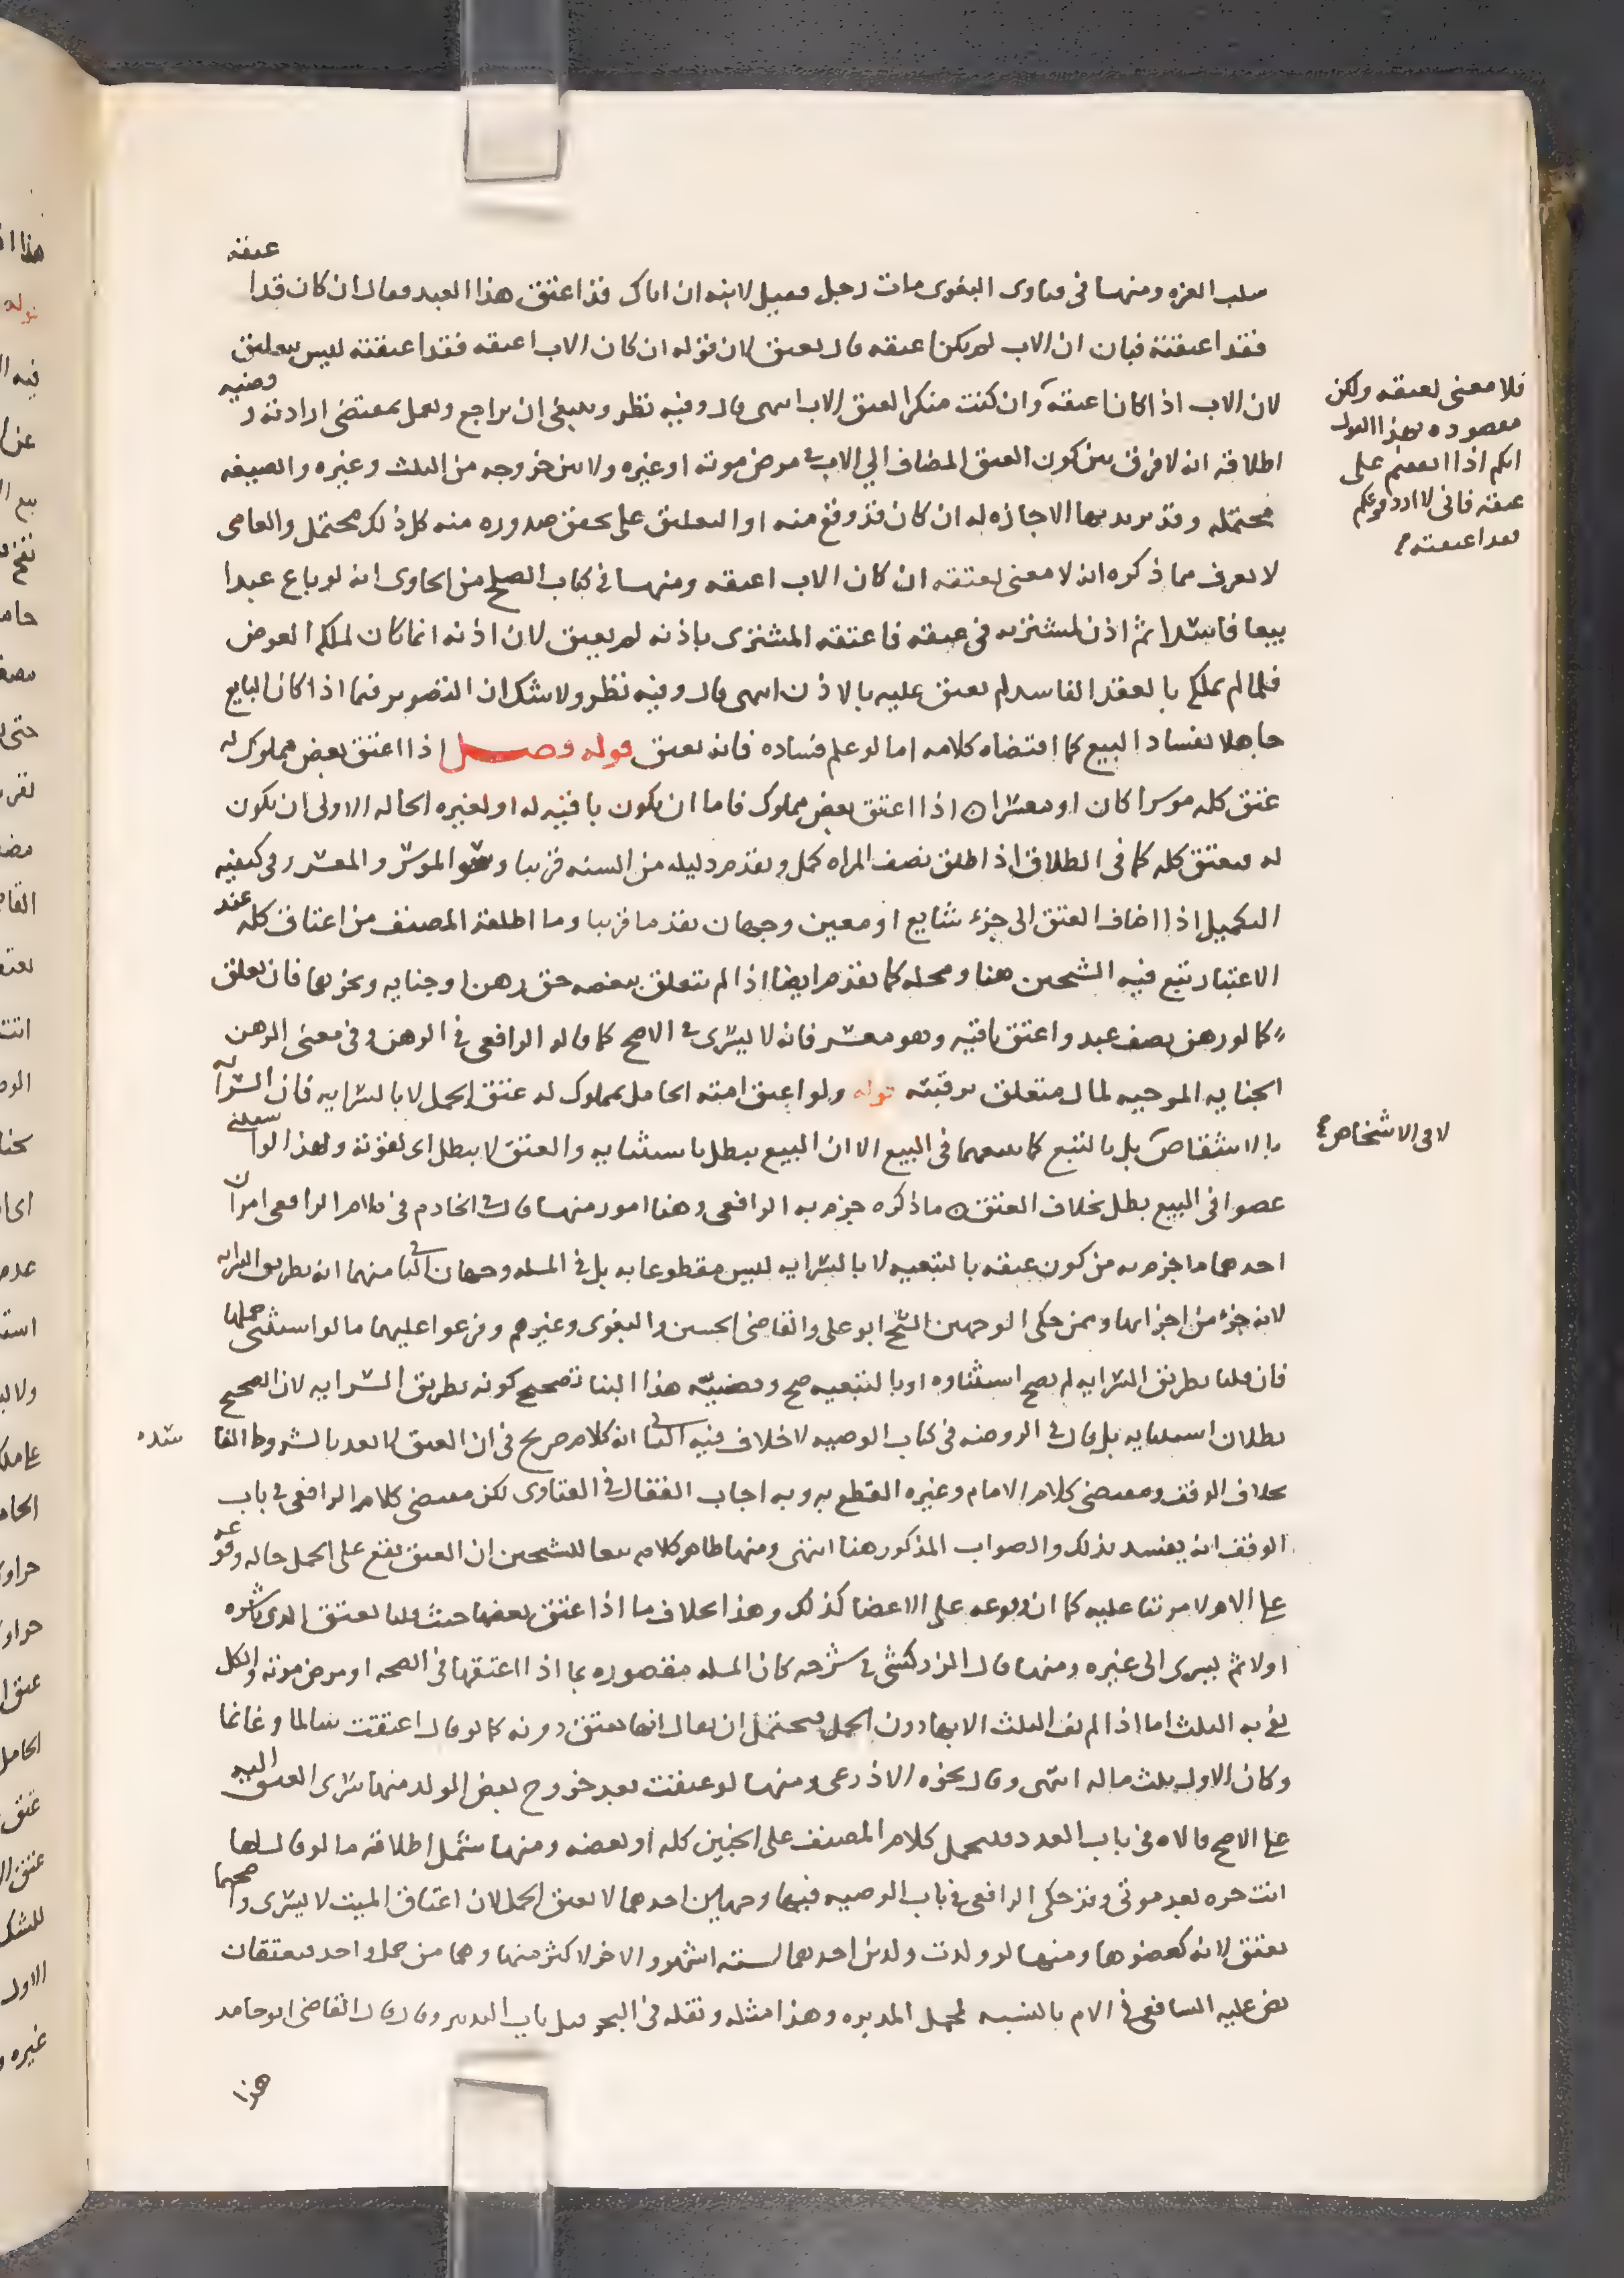 سلب الغره ومنها في فتاوى البغوى مات رجل فقيل لابنه ان اباك قد اعتق هذا العبد فقال ان كان قد ا عتقه
فقد اعتقته فبان ان الاب لم يكن اعتقه قال يعتق لان قوله ان كان الاب اعتقه فقد اعتقته ليس بتعليق
لان الاب اذا كان اعتقه وان كنت منكر العتق الاب انتهى قال وفيه نظر وينبغي ان يراجع ويعمل بمقتضى ارادته وقضيه
اطلاقه انه لا فرق بين كون العتق المضاف الي الاب في مرض موته او غيره ولا بين خروجه من الثلث وغيره والصيغه
محتمله وقد يريد بها الاجازه له ان كان قد وقع منه او التعليق على تحقق صدوره منه كل ذلك محتمل والعامى
لا يعرف مما ذكره انه لا معنى لعتقه ان كان الاب اعتقه ومنها في كتاب الصلح من الحاوى انه لو باع عبدا
بيعا فاسدا ثم اذن لمشتريه في عتقه فاعتقه المشترى باذنه لم يعتق لان اذنه انما كان لملكه العوض
فلما لم يملكه بالعقد الفاسد لم يعتق عليه بالاذن انتهى قال وفيه نظر ولا شك ان التصوير فيما اذا كان البايع
جاهلا بفساد البيع كما اقتضاه كلامه اما لو علم فساده فانه يعتق قوله فصل اذا اعتق بعض مملوك له
عتق كله موسرا كان او معسرا ن اذا اعتق بعض مملوك فاما ان يكون باقيه له او لغيره الحاله الاولى ان يكون
له فيعتق كله كما في الطلاق اذا طلق نصف المراه كمل وتقدم دليله من السنه قريبا وسوا الموسر والمعسر وفي كيفيه
التكميل اذا اضاف العتق الى جزء شايع او معين وجهان تقدما قريبا وما اطلقه المصنف من اعتاق كله عند
الاعتبار تبع فيه الشيخين هنا ومحله كما تقدم ايضا اذا لم يتعلق ببعضه حق رهن او جنايه ونحوها فان تعلق
كما لو رهن نصف عبد واعتق باقيه وهو معسر فانه لا يسرى في الاصح كما قاله الرافعى في الرهن وفي معنى الرهن
الجنايه الموجبه لمال متعلق برقبته قوله ولو اعتق امته الحامل بمملوك له عتق الحمل لا بالسرايه فان السرايه
بالاشقاص بل بالتبع كما يتبعها في البيع الا ان البيع يبطل باستثنايه والعتق لا يبطل اى لقوته ولهذا لو استثنى
عضوا في البيع بطل بخلاف العتق ن ما ذكره جزم به الرافعى وهنا امور منها قال في الخادم في كلام الرافعى امران
احدهما ما جزم به من كون عتقه بالتبعيه لا بالسرايه ليس مقطوعا به بل في المسله وجهان الثاني منهما انه بطريق السرايه
لانه جزء من اجزائها وممن حكى الوجهين الشيخ ابو على والقاضى الحسين والبغوى وغيرهم وفرعوا عليهما ما لو استثنى حملها
فان قلنا بطريق السرايه لم يصح استثناوه او بالتبعيه صح وقضيه هذا البنا تصحيح كونه بطريق السرايه لان الصحيح
بطلان استثنايه بل قال في الروضه في كتاب الوصيه لا خلاف فيه الثاني انه كلام صريح في ان العتق لا يفسد بالشروط الفاسده
بخلاف الوقف ومقتضى كلام الامام وغيره القطع به وبه اجاب القفال في الفتاوى لكن مقتضى كلام الرافعى في باب
الوقف انه يفسد بذلك والصواب المذكور هنا انتهى ومنها ظاهر كلامه تبعا للشيخين ان العتق يقع على الحمل حاله وقوعه
على الام لا مرتبا عليه كما ان وقوعه على الاعضا كذلك وهذا بخلاف ما اذا عتق بعضها حيث قلنا يعتق الذى باشره
اولا ثم يسرى الى غيره ومنها قال الزركشى في شرحه كان المسله مقصوره بما اذا اعتقها في الصحه او مرض موته والكل
يفي به الثلث اما اذا لم يف الثلث الا بها دون الحمل فيحتمل ان يقال انها تعتق دونه كما لو قال اعتقت سالما وغانما
وكان الاول ثلث ماله انتهى وقال نحوه الاذرعى ومنها لو عتقت بعد خروج بعض الولد منها سرى العتق اليه
على الاصح قالاه في باب العدد فليحمل كلام المصنف على الجنين كله او بعضه ومنها شمل اطلاقه ما لو قال لها
انت حره بعد موتى وقد حكى الرافعى في باب الوصيه فيها وجهين احدهما لا يعتق الحمل لان اعتاق الميت لا يسرى واصحهما
يعتق لانه كعضوها ومنها لو ولدت ولدين احدهما لسته اشهر والاخر لاكثر منها وهما من حمل واحد فيعتقان
نص عليه الشافعى في الام بالنسبه لحمل المدبره وهذا مثله ونقله في البحر قبل باب التدبير وقال قال القاضى ابو حامد
هذا
فلا معنى لعتقه ولكن
مقصوده بهذا القول
انكم اذا اتفقتم على
عتقه فاني لا ارد قولكم
فقد اعتقته
لا في الاشخاص